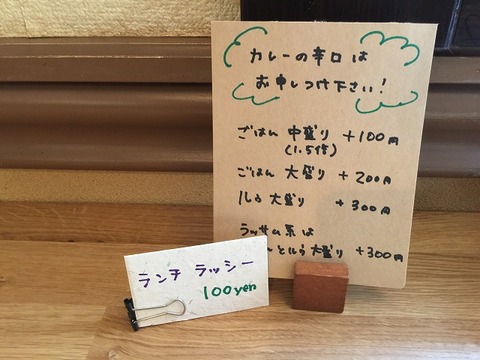 カレーの辛口は
お申しつけ下さい!
ごはん 中盛り +100円
(1.5倍)
ごはん 大盛り +200円
ルう 大盛り +300円
ラッサム系は
んとルう大盛り +300円
ランチ ラッシー
100yen